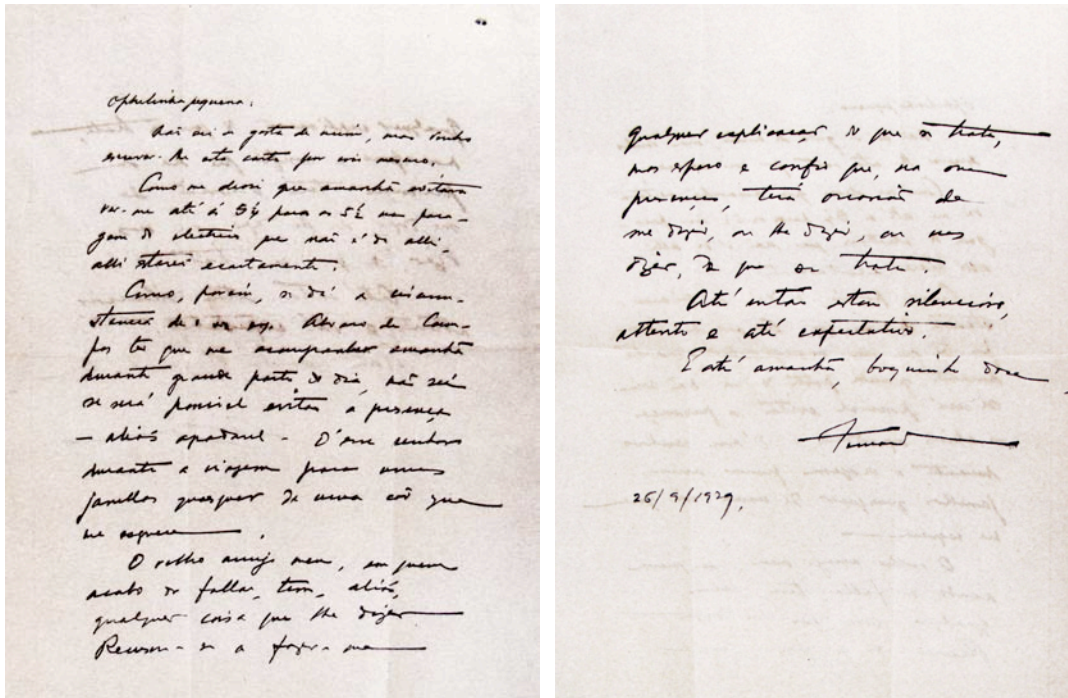 Ophelinha pequena:
Não sei se gosta de mim, mas venho
escrever-lhe esta carta por isso mesmo.
Como me disse que amanhã evitava
ver-me até ás 5¼ para as 5½ na para-
gem do electrico que não é da alli,
alli estarei exactamente.
Como, porém, se dá a circum-
stancia de o sr. eng. Alvaro de Cam-
pos ter que me acompanhar amanhã
durante grande parte do dia, não sei
se será possivel evitar a presença
— aliás agradavel — d'esse senhor
durante a viagem para umas
janellas quaesquer de uma côr que
me esqueceu.
O velho amigo meu, em quem
acabo de fallar, tem, aliás,
qualquer coisa que lhe dizer.
Recusa-se a fazer-me
qualquer explicação do que se trata,
mas espero e confio que, na sua
presença, terá occasião de
me dizer, ou lhe dizer, ou nos
dizer, de que se trata.
Até então estou silencioso,
attento e até expectativo.
E até amanhã, boquinha doce
Fernando
26/9/1929.